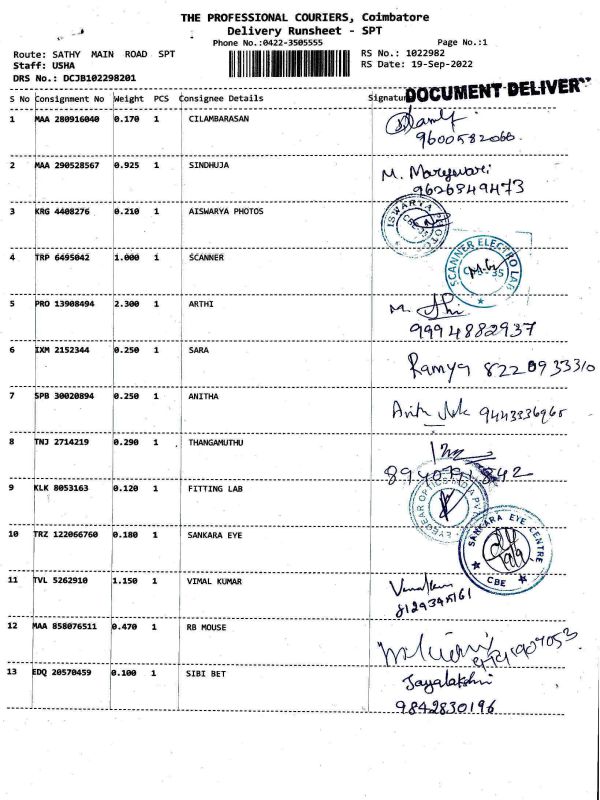 THE PROFESSIONAL COURIERS, Coimbatore
Delivery Runsheet - SPT
Phone No.:0422-3505555 Page No.:1
Route: SATHY MAIN ROAD SPT RS No.: 1022982
Staff: USHA RS Date: 19-Sep-2022
DRS No.: DCJB102298201
DOCUMENT DELIVER
S No Consignment No Weight PCS Consignee Details Signatur
1 MAA 280916040 0.170 1 CILAMBARASAN
9600582066
2 MAA 290528567 0.925 1 SINDHUJA M. Mareswari
9626849473
3 KRG 4408276 0.210 1 AISWARYA PHOTOS
4 TRP 6495042 1.000 1 SCANNER SCANNER ELECTRO LAB
5 PRO 13908494 2.300 1 ARTHI
9994882937
6 IXM 2152344 0.250 1 SARA Ramya 8220933310
7 SPB 30020894 0.250 1 ANITHA
9443336965
8 TNJ 2714219 0.290 1 THANGAMUTHU
9 KLK 8053163 0.120 1 FITTING LAB
10 TRZ 122066760 0.180 1 SANKARA EYE SANKARA EYE CENTRE
CBE
11 TVL 5262910 1.150 1 VIMAL KUMAR
12 MAA 858076511 0.470 1 RB MOUSE
13 EDQ 20570459 0.100 1 SIBI BET Jayalakshmi
9842830196